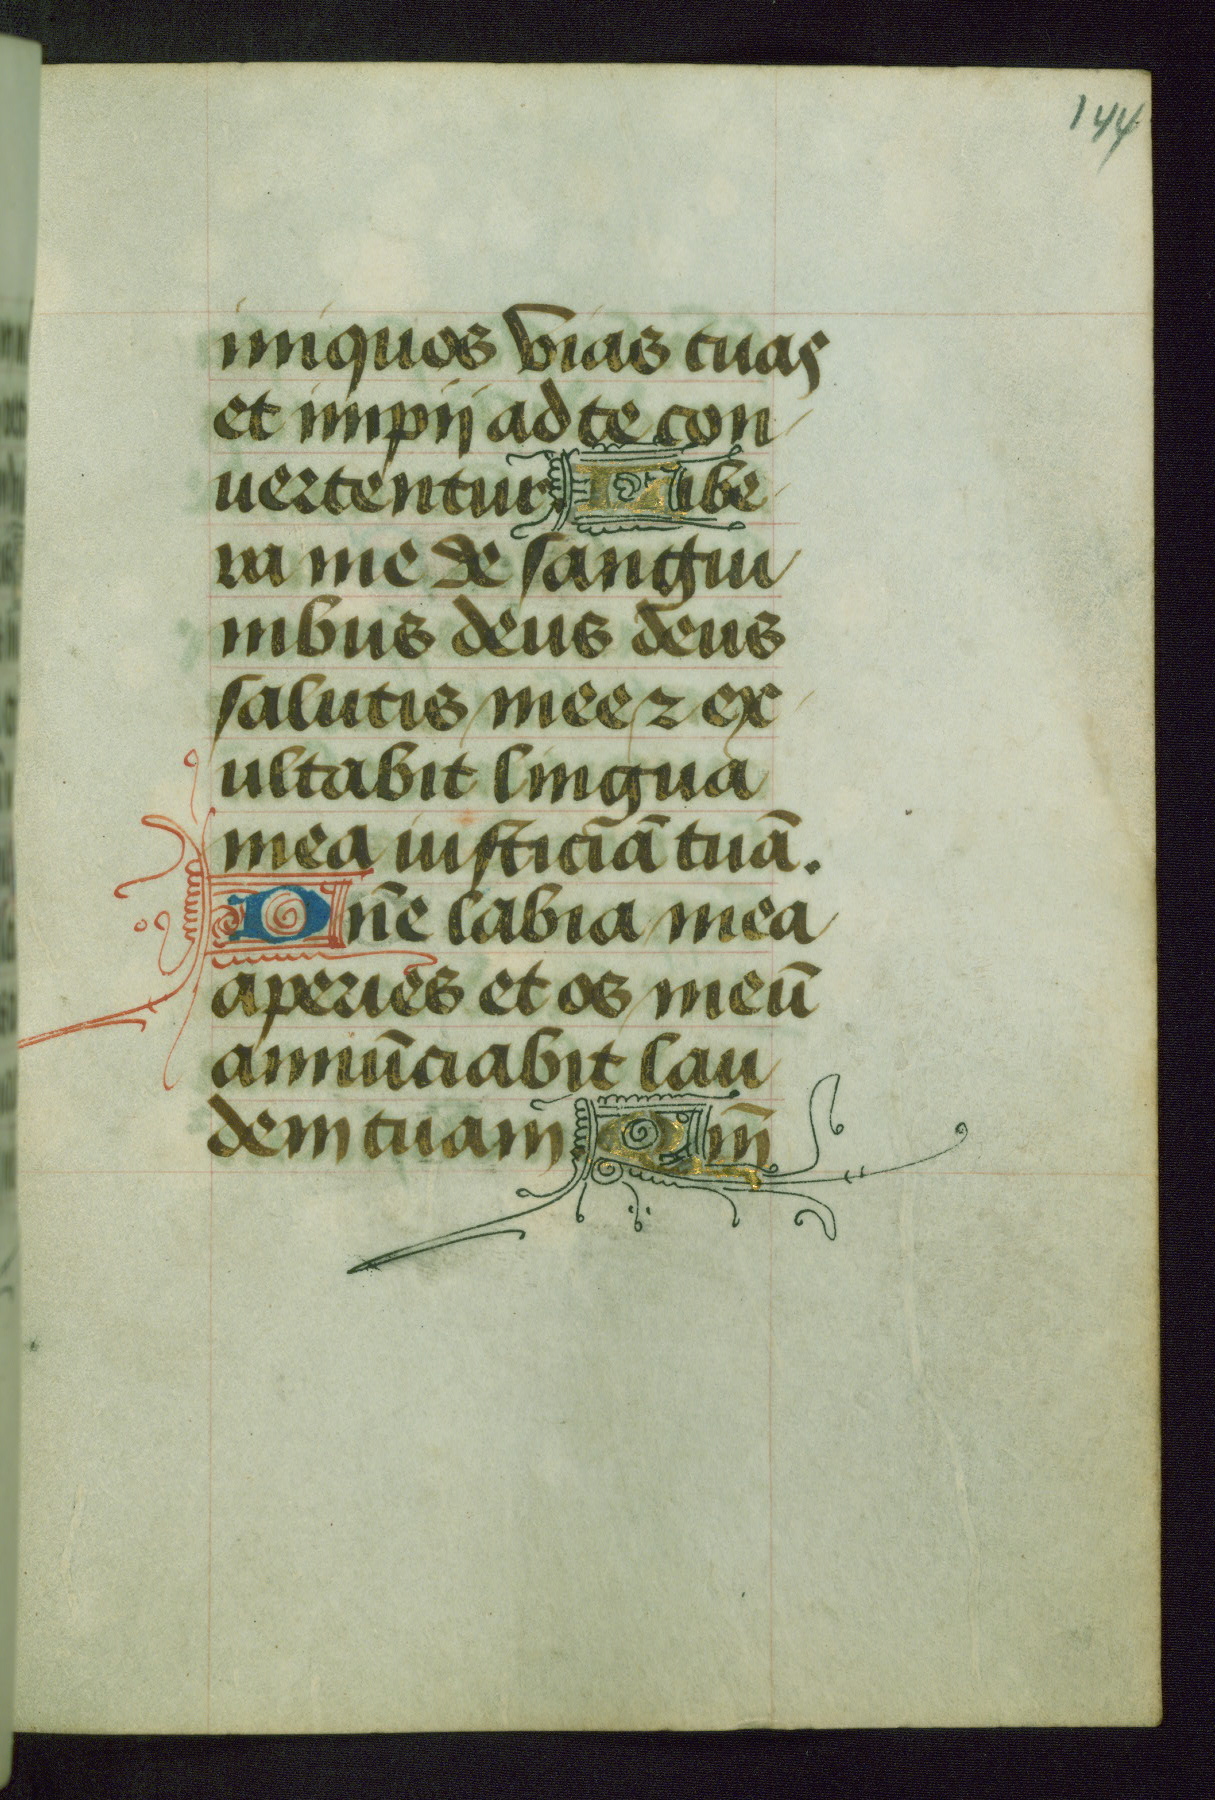 144
iniquos vias tuas
et impij ad te con
uertentur. Libe
ra me de sangui
nibus deus deus
salutis mee ⁊ ex
ultabit lingua
mea iusticiā tuā.
Dn̄e labia mea
aperies et os meū
annūciabit lau
dem tuam Qm̄